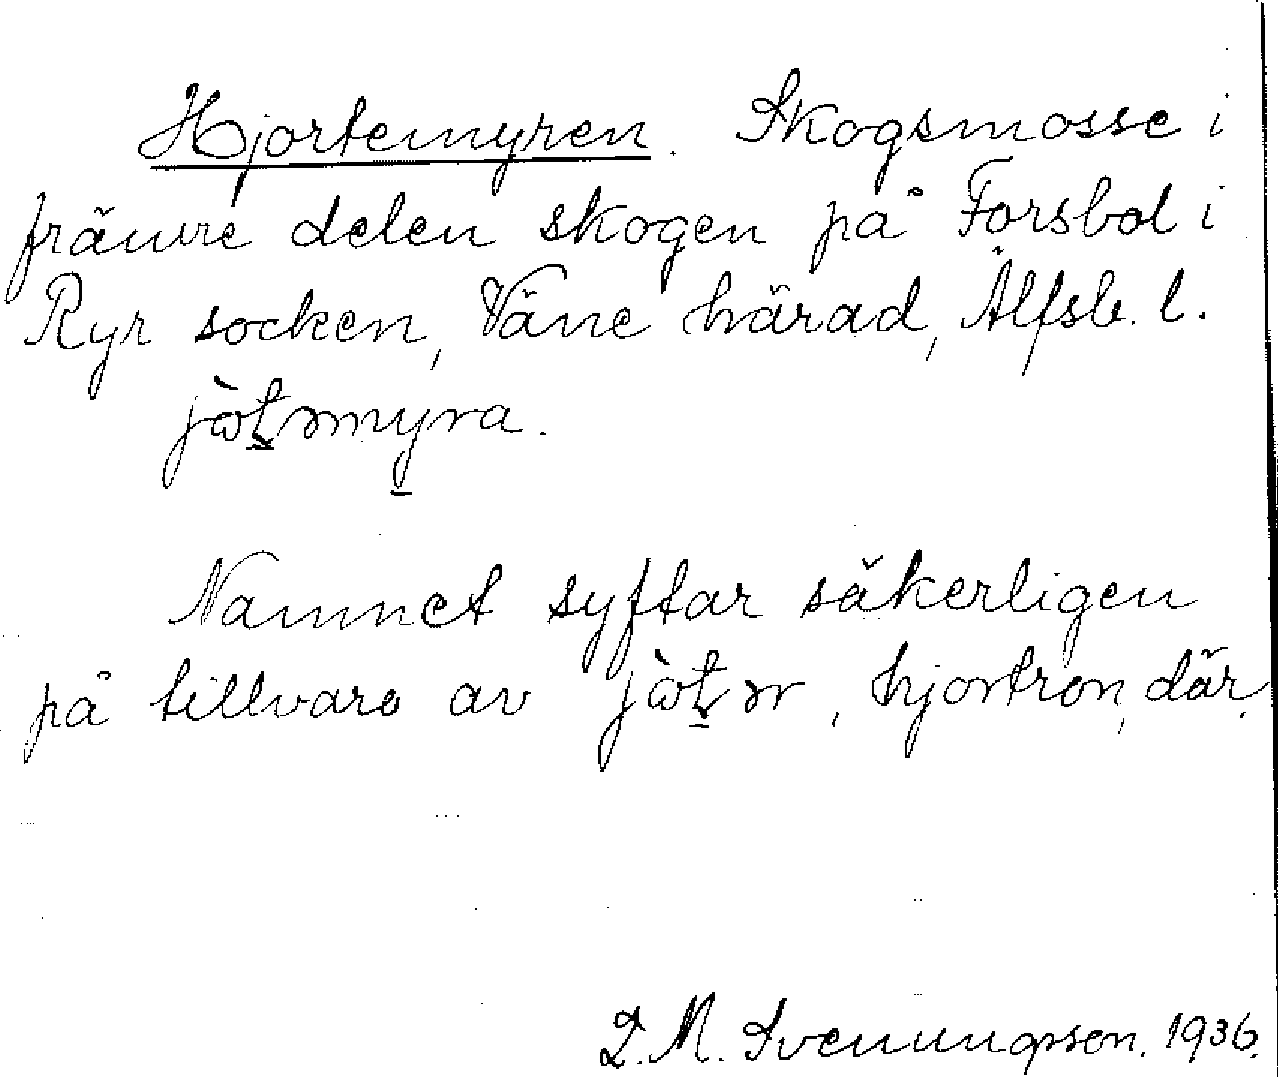 Hjortemyren. Skogsmosse i
främre delen skogen på Forsbol i
Ryr socken, Väne härad, Älfsb. l.
jòt̠əmy̠ra.
Namnet syftar säkerligen
på tillvaro av jòt̠ər, hjortron, där.
L. M. Svenungsson. 1936.